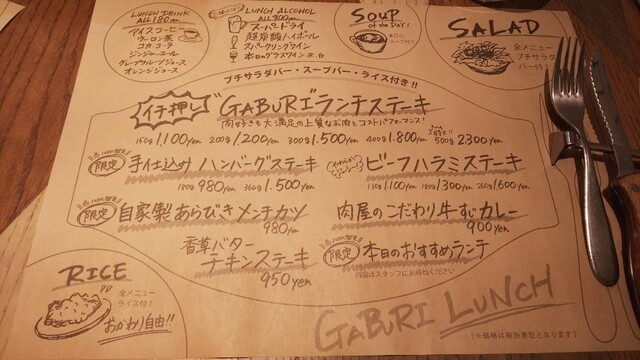 LUNCH DRINK
ALL 180 yen
アイスコーヒー
ウーロン茶
コカ・コーラ
ジンジャーエール
グレープフルーツジュース
オレンジジュース
LUNCH ALCOHOL
ALL 300 yen
スーパードライ
超炭酸ハイボール
スパークリングワイン
本日のグラスワイン 赤・白
SOUP
of the DAY!
本日の
スープ付!
SALAD
全メニュー
プチサラダ
バー付!
プチサラダバー・スープバー・ライス付き!!
イチ押し
"GABURI"ランチステーキ
肉好きも大満足の上質なお肉とコストパフォーマンス!
150g 1,100yen 200g 1,200yen 300g 1,500yen 400g 1,800yen 500g 2,300yen
限定
手仕込みハンバーグステーキ
180g 980yen 360g 1,500yen
ビーフハラミステーキ
130g 1,100yen 180g 1,300yen 260g 1,600yen
限定
自家製あらびきメンチカツ
980yen
肉屋のこだわり牛すじカレー
900yen
香草バター
チキンステーキ
950yen
限定
本日のおすすめランチ
内容はスタッフにお尋ねください
RICE
全メニュー
ライス付!
おかわり自由!!
GABURI LUNCH
[※価格は税別表記となります]